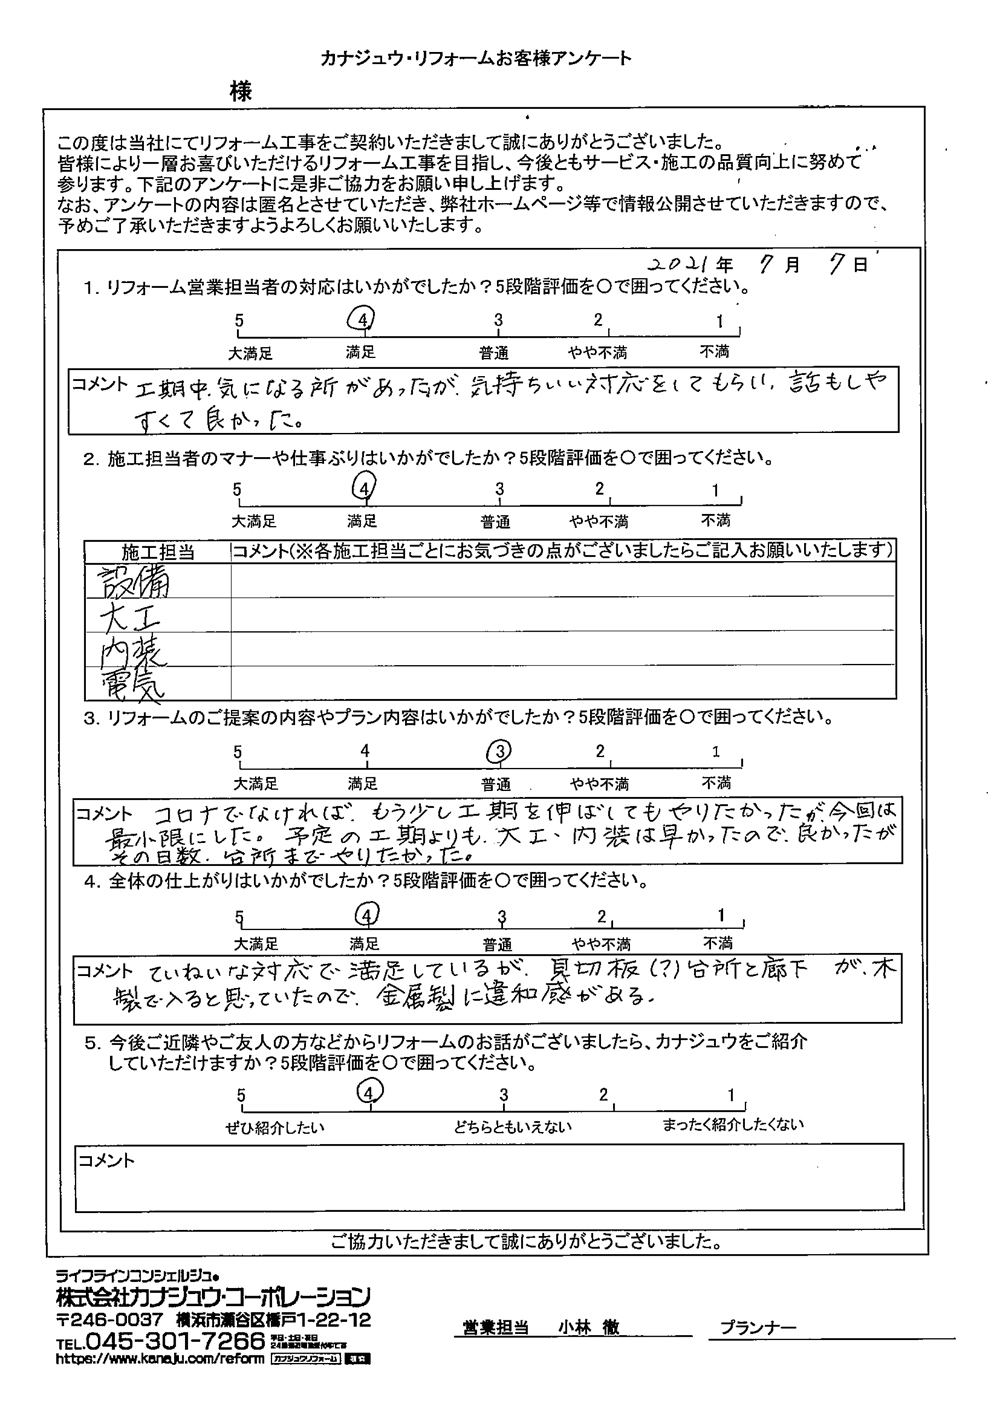 カナジュウ・リフォームお客様アンケート
様
この度は当社にてリフォーム工事をご契約いただきまして誠にありがとうございました。
皆様により一層お喜びいただけるリフォーム工事を目指し、今後ともサービス・施工の品質向上に努めて
参ります。下記のアンケートに是非ご協力をお願い申し上げます。
なお、アンケートの内容は匿名とさせていただき、弊社ホームページ等で情報公開させていただきますので、
予めご了承いただきますようよろしくお願いいたします。
2021年 7月 7日
1. リフォーム営業担当者の対応はいかがでしたか？5段階評価を○で囲ってください。
5 4 3 2 1
大満足 満足 普通 やや不満 不満
コメント 工期中、気になる所があったが、気持ちいい対応をしてもらい、話もしや
すくて良かった。
2. 施工担当者のマナーや仕事ぶりはいかがでしたか？5段階評価を○で囲ってください。
5 4 3 2 1
大満足 満足 普通 やや不満 不満
施工担当 コメント(※各施工担当ごとにお気づきの点がございましたらご記入お願いいたします)
設備
大工
内装
電気
3. リフォームのご提案の内容やプラン内容はいかがでしたか？5段階評価を○で囲ってください。
5 4 3 2 1
大満足 満足 普通 やや不満 不満
コメント コロナでなければ、もう少し工期を伸ばしてもやりたかったが、今回は
最小限にした。予定の工期よりも、大工、内装は早かったので、良かったが
その日数、台所までやりたかった。
4. 全体の仕上がりはいかがでしたか？5段階評価を○で囲ってください。
5 4 3 2 1
大満足 満足 普通 やや不満 不満
コメント ていねいな対応で満足しているが、見切板(?)台所と廊下 が、木
製で入ると思っていたので、金属製に違和感がある。
5. 今後ご近隣やご友人の方などからリフォームのお話がございましたら、カナジュウをご紹介
していただけますか？5段階評価を○で囲ってください。
5 4 3 2 1
ぜひ紹介したい どちらともいえない まったく紹介したくない
コメント
ご協力いただきまして誠にありがとうございました。
ライフラインコンシェルジュ。
株式会社カナジュウ・コーポレーション
〒246-0037 横浜市瀬谷区橋戸1-22-12
TEL.045-301-7266
https://www.kanaju.com/reform カナジュウリフォーム 検索
営業担当 小林 徹 プランナー